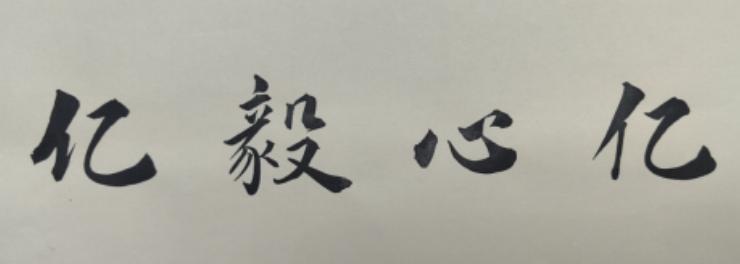 亿毅心亿